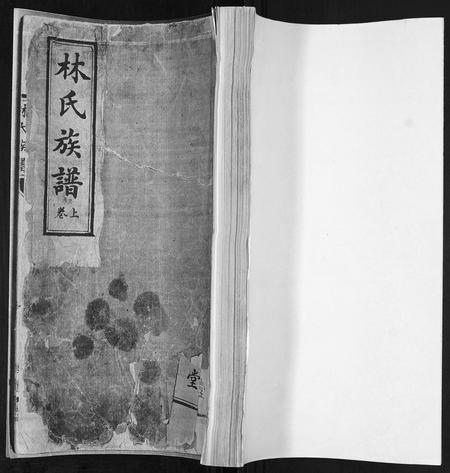 林氏族譜
卷上
林氏族譜
堂